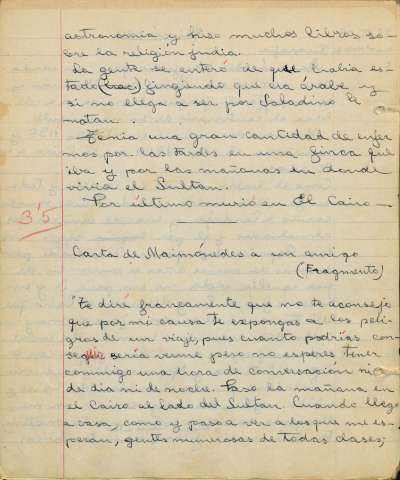 astronomía y hizo muchos libros so-
bre la religión judia.
La gente se enteró de que había es-
tado (enc.) fingiendo que era árabe y
si no llega a ser por Saladino le
matan.
Tenia una gran cantidad de enfer
mos por las tardes en una finca
iba y por las mañanas en donde
vivia el Sultan.
Por último murió en El Cairo —
3'5
Carta de Maimónedes a un amigo
(Fragmento)
"Te diré francamente que no te aconsejo
que por mi causa te expongas a los peli-
gros de un viaje, pues cuanto podrías con-
seguir sería verme pero no esperes tener
conmigo una hora de conversación ni
de dia ni de noche. Paso la mañana en
el Cairo al lado del Sultan. Cuando llego
a casa, como y paso a ver a los que me es-
peran, gentes numerosas de todas clases;